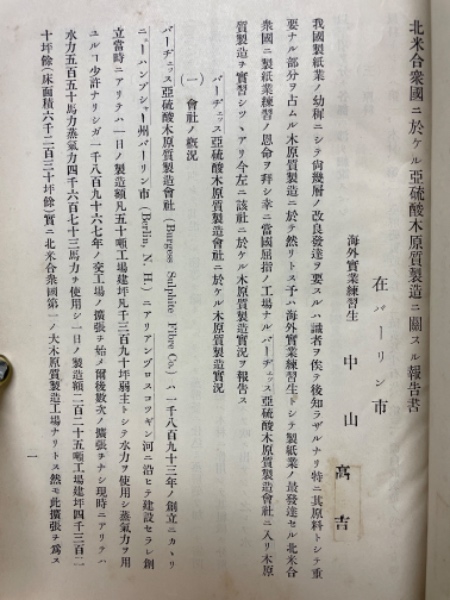 北米合衆國ニ於ケル亞硫酸木原質製造ニ關スル報告書
在バーリン市
海外實業練習生 中山高吉
我國製紙業ノ幼稚ニシテ尙幾層ノ改良發達ヲ要スルハ識者ヲ俟テ後知ラザルナリ特ニ其原料トシテ重
要ナル部分ヲ占ムル木原質製造ニ於テ然リトス予ハ海外實業練習生トシテ製紙業ノ最發達セル北米合
衆國ニ製紙業練習ノ恩命ヲ拜シ幸ニ當國屈指ノ工場ナルバーヂェッス亞硫酸木原質製造會社ニ入リ木原
質製造ヲ實習シツヽアリ今左ニ該社ニ於ケル木原質製造實況ヲ報告ス
バーヂェッス亞硫酸木原質製造會社ニ於ケル木原質製造實況
(一) 會社ノ概況
バーヂェッス亞硫酸木原質製造會社(Burgess Sulphite Fibre Co.)ハ一千八百九十三年ノ創立ニカヽリ
ニューハンプシャー州バーリン市(Berlin, N. H.)ニアリアンドロスコツギン河ニ沿ヒテ建設セラレ創
立當時ニアリテハ一日ノ製造額凡五十噸工場建坪凡千三百九十坪弱主トシテ水力ヲ使用シ蒸氣力ヲ用
ユル丨少許ナリシガ一千八百九十六七年ノ交工場ノ擴張ヲ始メ爾後數次ノ擴張ヲナシ現時ニアリテハ
水力五百五十馬力蒸氣力四千六百七十三馬力ヲ使用シ一日ノ製造額二百二十五噸工場建坪四千三百二
十坪餘(床面積六千二百三十坪餘)實ニ北米合衆國第一ノ大木原質製造工場ナリトス然モ此擴張ヲ爲ス
一